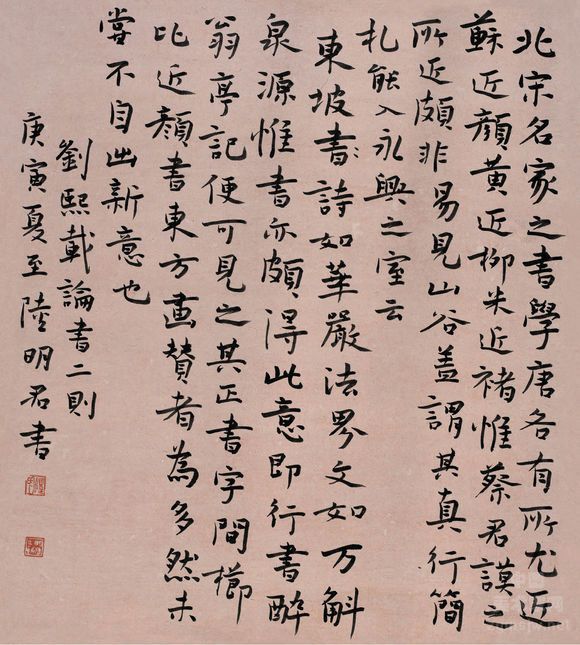 北宋名家之書學唐各有所尤近
蘇近顏黃近柳米近褚惟蔡君謨之
所近頗非易見山谷蓋謂其真行簡
札能入永興之室云
東坡書〻詩如華嚴法界文如万斛
泉源惟書亦頗得此意即行書醉
翁亭記便可見之其正書字間櫛
比近顏書東方画贊者為多然未
嘗不自出新意也
劉熙載論書二則
庚寅夏至陸明君書